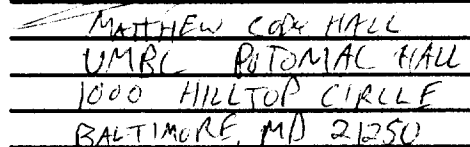 MATTHEW CODY HALL
UMBC POTOMAC HALL
1000 HILLTOP CIRCLE
BALTIMORE, MD 21250